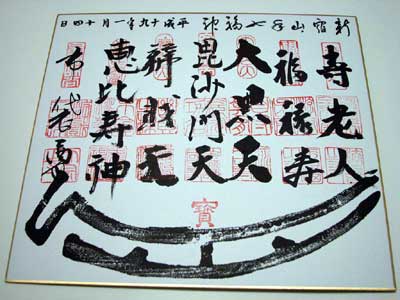 新宿山ノ手七福神 平成十九年一月十四日
寿老人
福禄寿
大黒天
毘沙門天
辨財天
恵比寿神
布袋
寳